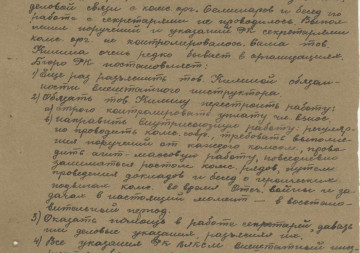 деловой связи с комс. орг. Семинаров и бесед по
работе с секретарями не проводилось. Выпол-
нение поручений и указаний РК секретарями
комс. орг. не контролировалось. Сама тов.
Килина очень редко бывает в организациях.
Бюро РК постановляет:
1) Еще раз разъяснить тов. Килиной обязан-
ности внештатного инструктора.
2) Обязать тов. Килину перестроить работу:
а) строго контролировать уплату чл. взнос.
б) направить внутрисоюзную работу: регуляр-
но проводить комс. собр., требовать выполне-
ния поручений от каждого комсом., прово-
дить агит-массовую работу, повседневно
заниматься ростом комс. рядов, путем
проведения докладов и бесед о героических
подвигах комс. во время Отеч. войны и за-
дачах в настоящий момент — в восстано-
вительный период.
3) Оказать помощь в работе секретарей, давать
им деловые указания, разъяснения
4) Все указания РК ВЛКСМ внештатный инс-